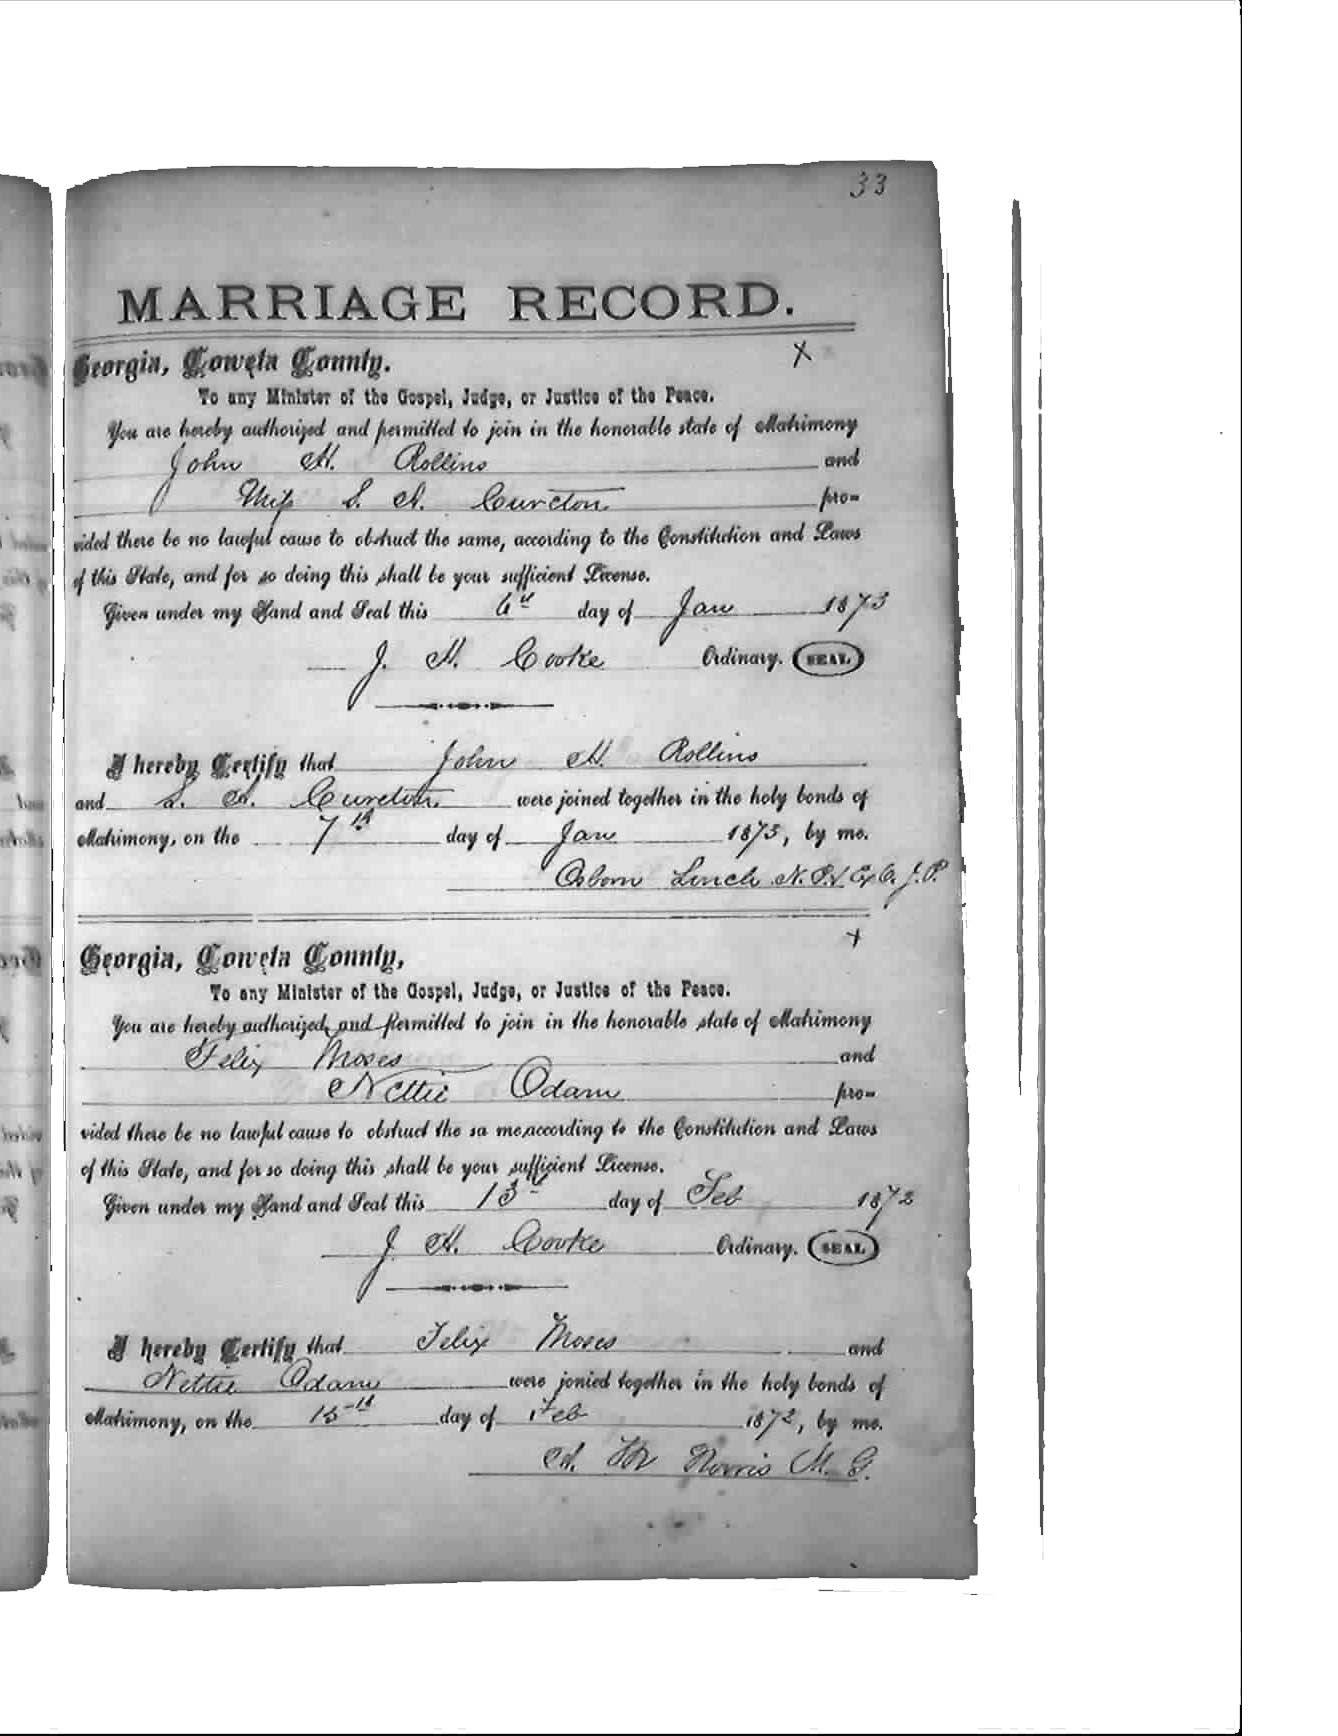 33
MARRIAGE RECORD.
Georgia, Coweta County. X
To any Minister of the Gospel, Judge, or Justice of the Peace.
You are hereby authorized and permitted to join in the honorable state of Matrimony
John H. Rollins and
Miss S. A. Cureton pro=
vided there be no lawful cause to obstruct the same, according to the Constitution and Laws
of this State, and for so doing this shall be your sufficient License.
Given under my Hand and Seal this 6th day of Jan 1873
J. H. Cooke Ordinary. SEAL
I hereby Certify that John H. Rollins
and S. A. Cureton were joined together in the holy bonds of
Matrimony, on the 7th day of Jan 1873, by me.
Osborn Linch N.P. & Ex O. J.P.
Georgia, Coweta County, X
To any Minister of the Gospel, Judge, or Justice of the Peace.
You are hereby authorized and permitted to join in the honorable state of Matrimony
Felix Moses and
Nettie Odam pro=
vided there be no lawful cause to obstruct the sa me,according to the Constitution and Laws
of this State, and for so doing this shall be your sufficient License.
Given under my Hand and Seal this day of Feb 1872
J. H. Cooke Ordinary. SEAL
I hereby Certify that Felix Moses and
Nettie Odam were jonied together in the holy bonds of
Matrimony, on the 15th day of Feb 1872, by me.
Norris M. G.